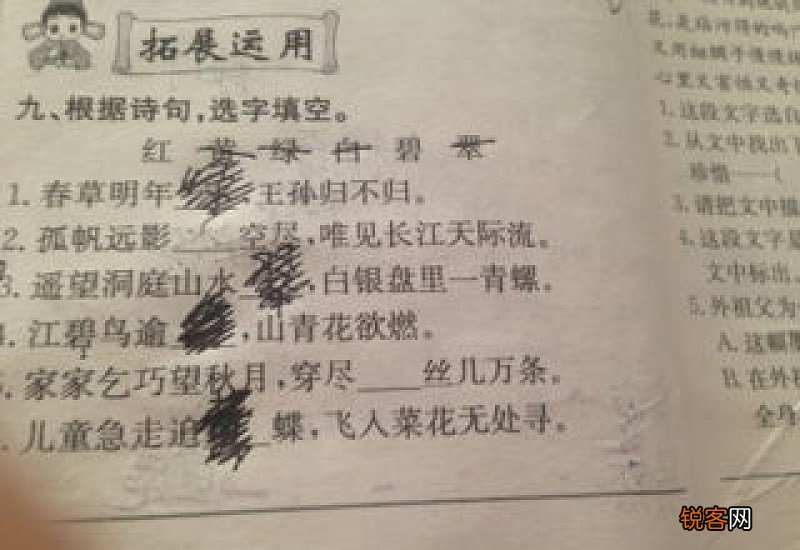 拓展运用
九、根据诗句,选字填空。
红 黄 绿 白 碧 翠
1.春草明年 ,王孙归不归。
2.孤帆远影____空尽,唯见长江天际流。
3.遥望洞庭山水 翠,白银盘里一青螺。
江碧鸟逾 ,山青花欲燃。
家家乞巧望秋月,穿尽____丝几万条。
儿童急走追 蝶,飞入菜花无处寻。
花,是临河得的鸣
又用细腻于慢慢
心里又富恒又奇
1.这段文字选自
2.从文中找出下
珍惜——(
3.请把文中描
4.这段文字是
文中标出。
5.外祖父为
A.这幅墨
B.在外
全身
锐客网